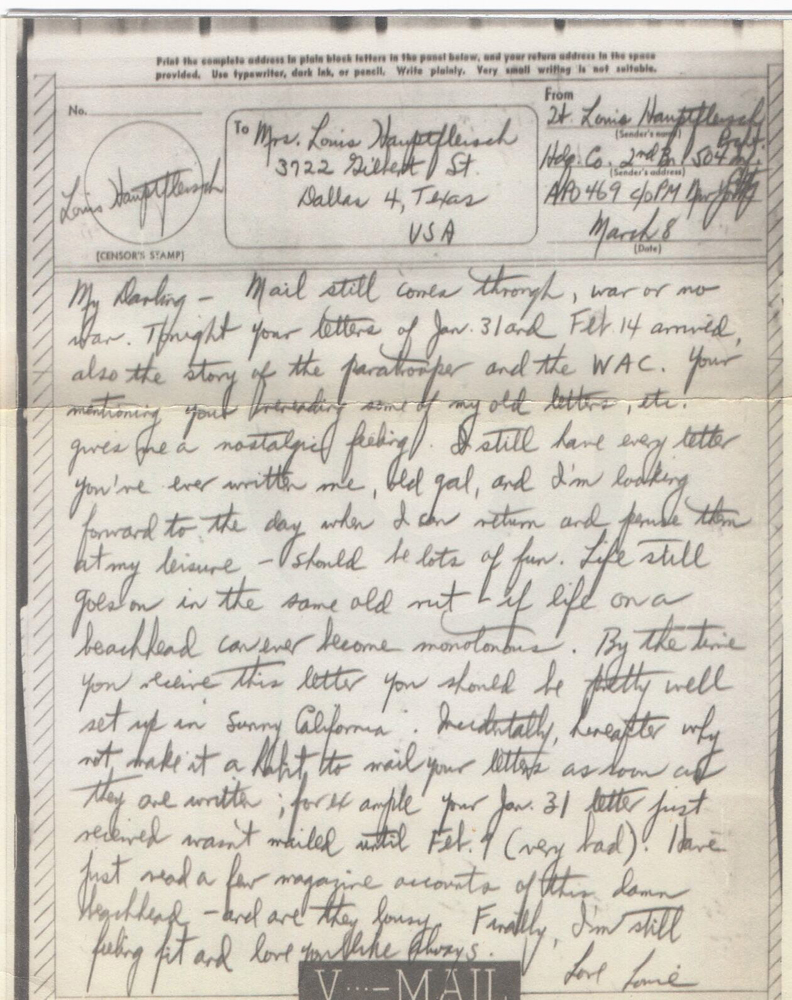 Print the complete address in plain block letters in the panel below, and your return address in the space
provided. Use typewriter, dark ink, or pencil. Write plainly. Very small writing is not suitable.
No.
Louis Hauptfleisch
[CENSOR'S STAMP]
To Mrs. Louis Hauptfleisch
3722 Gilbert St.
Dallas 4, Texas
USA
From
Lt. Louis Hauptfleisch
(Sender's name)
Hdq. Co. 2nd Bn. 504
(Sender's address)
APO 469 c/o PM New York
March 8
(Date)
My Darling – Mail still comes through, war or no
war. Tonight your letters of Jan. 31 and Feb. 14 arrived,
also the story of the paratrooper and the WAC. Your
mentioning your rereading some of my old letters, etc.
gives me a nostalgic feeling. I still have every letter
you've ever written me, old gal, and I'm looking
forward to the day when I can return and peruse them
at my leisure – should be lots of fun. Life still
goes on in the same old rut – if life on a
beachhead can ever become monotonous. By the time
you receive this letter you should be pretty well
set up in Sunny California. Incidentally, hereafter why
not make it a habit to mail your letters as soon as
they are written; for example your Jan. 31 letter just
received wasn't mailed until Feb. 9 (very bad). Have
just read a few magazine accounts of this damn
beachhead – and are they lousy. Finally, I'm still
feeling fit and love you like always.
Love Louie
V···–MAIL